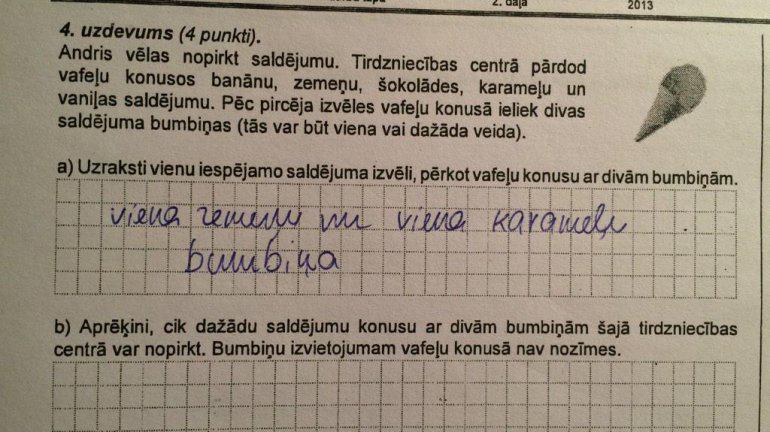 2. daļa
2013
4. uzdevums (4 punkti).
Andris vēlas nopirkt saldējumu. Tirdzniecības centrā pārdod
vafeļu konusos banānu, zemeņu, šokolādes, karameļu un
vaniļas saldējumu. Pēc pircēja izvēles vafeļu konusā ieliek divas
saldējuma bumbiņas (tās var būt viena vai dažāda veida).
a) Uzraksti vienu iespējamo saldējuma izvēli, pērkot vafeļu konusu ar divām bumbiņām.
viena zemeņu un viena karameļu
bumbiņa
b) Aprēķini, cik dažādu saldējumu konusu ar divām bumbiņām šajā tirdzniecības
centrā var nopirkt. Bumbiņu izvietojumam vafeļu konusā nav nozīmes.